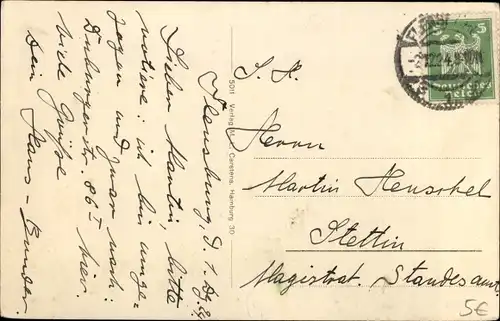 Flensburg, d. 1. Dez. 24
Lieber Martin, bitte
notiere: ich bin umge-
zogen und zwar nach:
Duburgerstr. 86 I
viele Grüße hier.
Dein Hans-Gunder
5011 Verlag M. Carstens, Hamburg 30
5
Deutsches
Reich
S. H.
Herrn
Martin Henschel
Stettin
Magistrat. Standesamt
5€